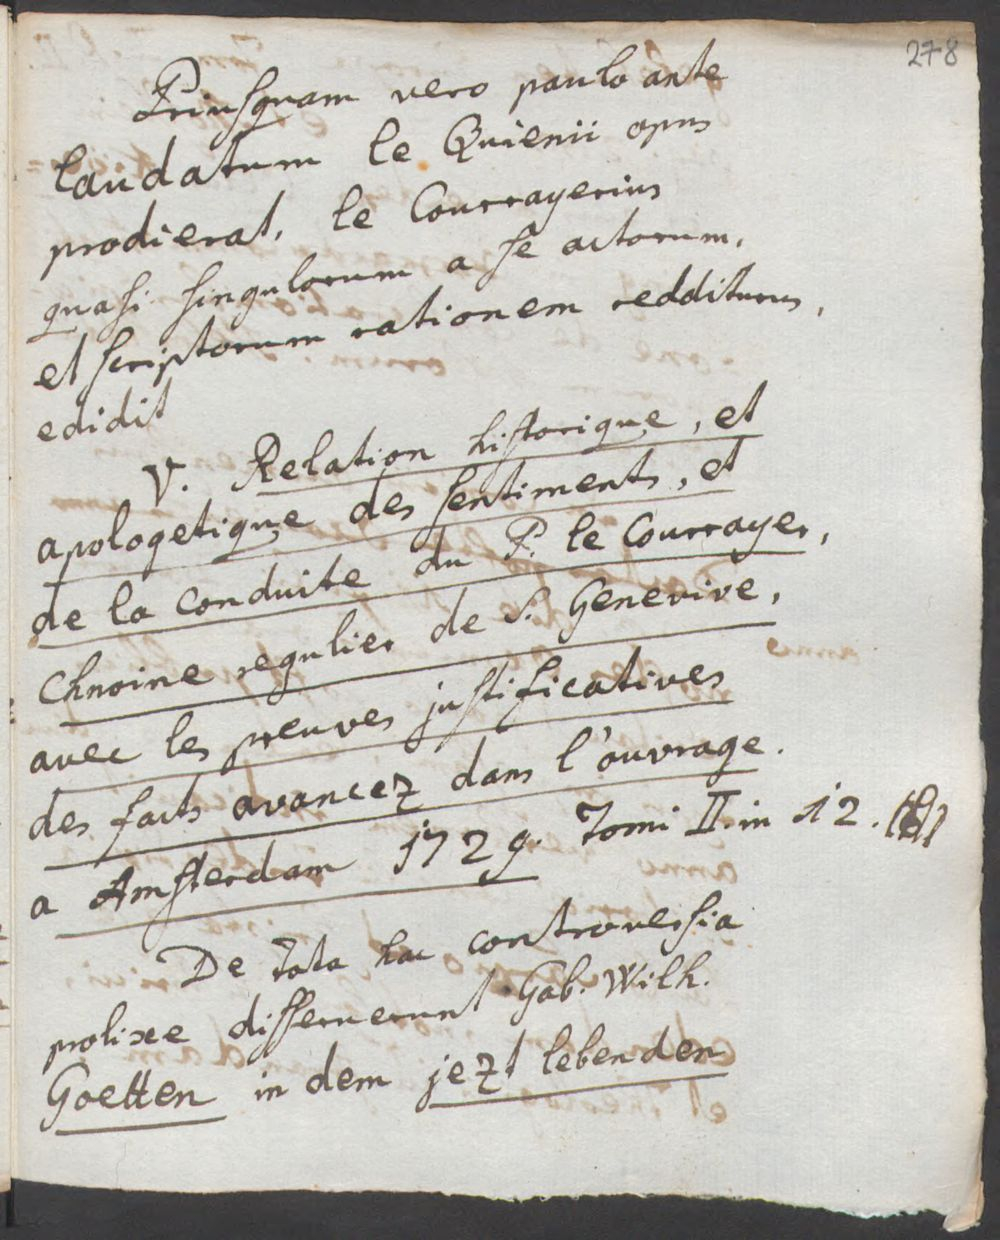 278
Priusquam vero paulo ante
laudatum le Quienii opus
prodierat, le Courrayerius
quasi singulorum a se actorum,
et scriptorum rationem redditurus,
edidit
V. Relation historique, et
apologetique des sentiments, et
de la conduite du P. le Courrayer,
Chnoine regulier de S. Genevive,
avec les preuves justificatives
des faits avancez dans l'ouvrage.
a Amsterdam 1729. Tomi II. in 12.
De tota hac controversia
prolixe disseruerunt Gab. Wilh.
Goetten in dem jezt lebenden